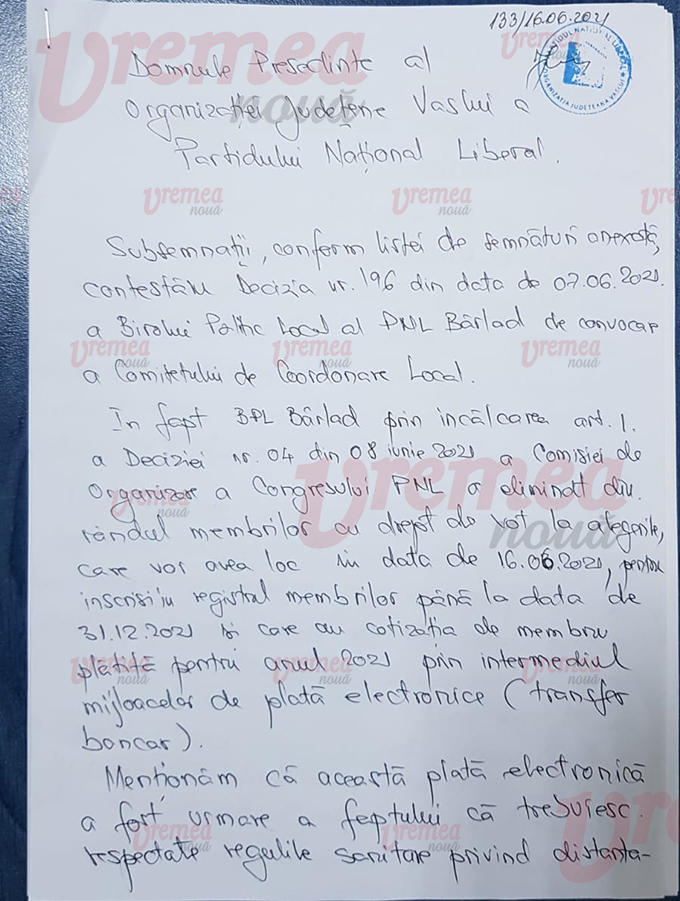 133/16.06.2021
PARTIDUL NAȚIONAL LIBERAL
ORGANIZAȚIA JUDEȚEANĂ VASLUI
Domnule Președinte al
Organizației Județene Vaslui a
Partidului Național Liberal.
Subsemnații, conform listei de semnături anexată,
contestăm Decizia nr. 196 din data de 07.06.2021.
a Biroului Politic Local al PNL Bârlad de convocare
a Comitetului de Coordonare Local.
În fapt BPL Bârlad prin încălcarea art. 1.
a Deciziei nr. 04 din 08 iunie 2021 a Comisiei de
Organizare a Congresului PNL a eliminat din
rândul membrilor cu drept de vot la alegerile,
care vor avea loc în data de 16.06.2021, pentru
inscrisi in registrul membrilor până la data de
31.12.2021 și care au cotizația de membru
plătită pentru anul 2021 prin intermediul
mijloacelor de plată electronice (transfer
bancar).
Menționăm că această plată electronică
a fost urmare a faptului că trebuiesc
respectate regulile sanitare privind distanta-
Vremea nouă